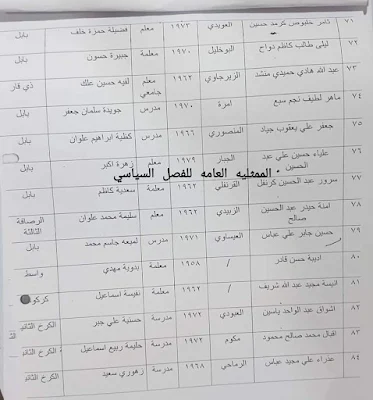 ٧١ ثامر خليوص كرمد حسين العويدي ١٩٧٣ معلم فضيلة حمزة خلف بابل
٧٢ ليلى طالب كاظم دواح البوخليل ١٩٧٠ معلمة جبيرة حسون بابل
٧٣ عبد الله هادي حميدي منشد الزيرجاوي ١٩٦٢ معلم جامعي لفيه حسين علك ذي قار
٧٤ ماهر لطيف نجم سبع امرة ١٩٧٠ مدرس جويدة سلمان جعفر بابل
٧٥ جعفر علي يعقوب جياد المنصوري ١٩٦٦ مدرس كظية ابراهيم علوان بابل
٧٦ علياء حسين علي عبد الحسين الجبار ١٩٧٩ معلم زهرة اكبر بابل
الممثليه العامه للفصل السياسي
٧٧ سرور عبد الحسين كرنفل القرنفلي ١٩٦٢ معلمة سعدية كاظم بابل
٧٨ امنة حيدر عبد الحسين صالح الزبيدي ١٩٦٢ معلم سليمة محمد علوان الرصافة الثالثة
٧٩ حسين جابر علي عباس العيساوي ١٩٧١ مدرس لميعه جاسم محمد بابل
٨٠ اديبة حسن قادر / ١٩٥٨ معلمة بدوية مهدي واسط
٨١ اديسة مجيد عبد الله شريف / ١٩٦٢ معلمة نفيسة اسماعيل كركو
٨٢ اشواق عبد الواحد ياسين العبودي ١٩٧٢ مدرسة حسنية علي جبر الكرخ الثاني
٨٣ اقبال محمد صالح محمود مكوم ١٩٧٢ مدرسة حليمة ربيع اسماعيل الكرخ الثاني
٨٤ عذراء علي مجيد عباس الرماحي ١٩٦٨ مدرسة زهوري سعيد الكرخ الثاني